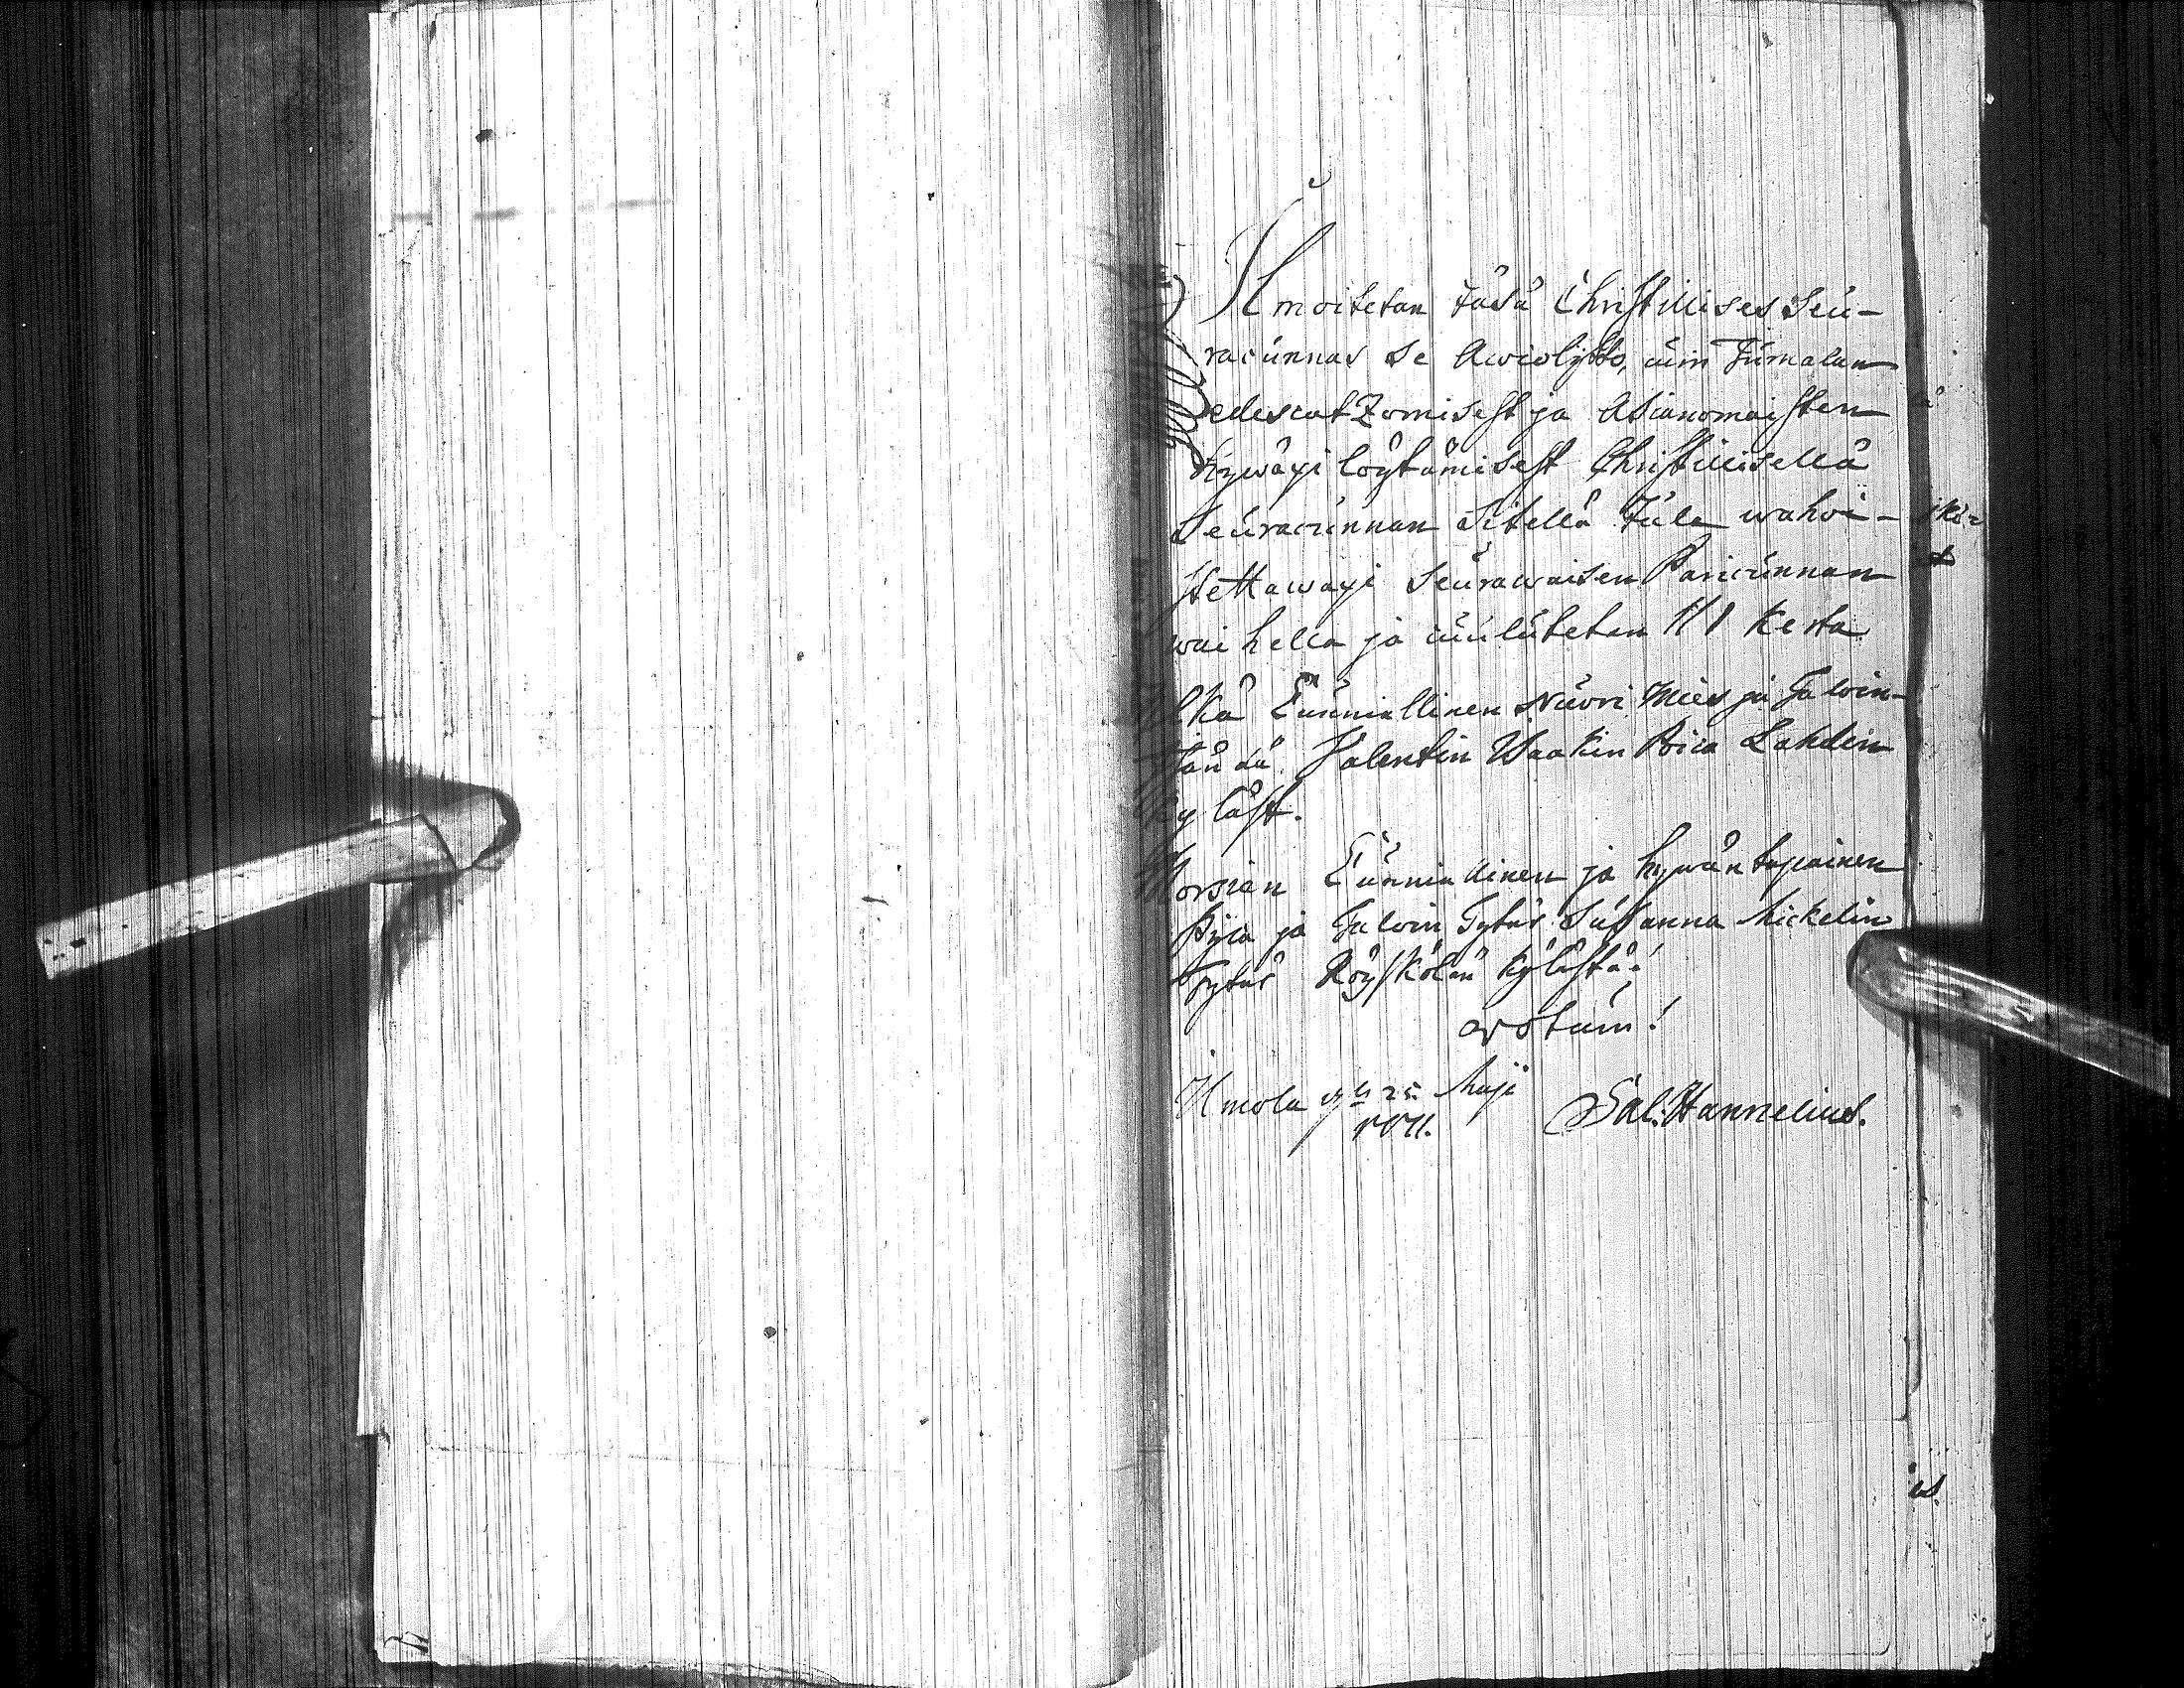 Ilmoitetan täsä Christillises Seu-
racunnas se Awioliitto, cuin Jumalan
edescatzomisest ja Asianomaisten
hywäxi löytämisest Christillisellä
Seuracunnan Sitellä tule wahwi-
stettawaxi seurawaisen Pariscunnan
waihella ja cuulutetan 1 kerta
Ylkä Cunniallinen Nuori Mies ja Talon-
Isändä Valentin Waakin Poica Lahden
kyläst.
Morsian Cunniallinen ja hywäntapainen
Pijca ja Talon Tytär Susanna Mickelin
Tytär Röyskölän kylästä!
votum!
Ilmola d. 25 Maji
Sal. Hannelius.